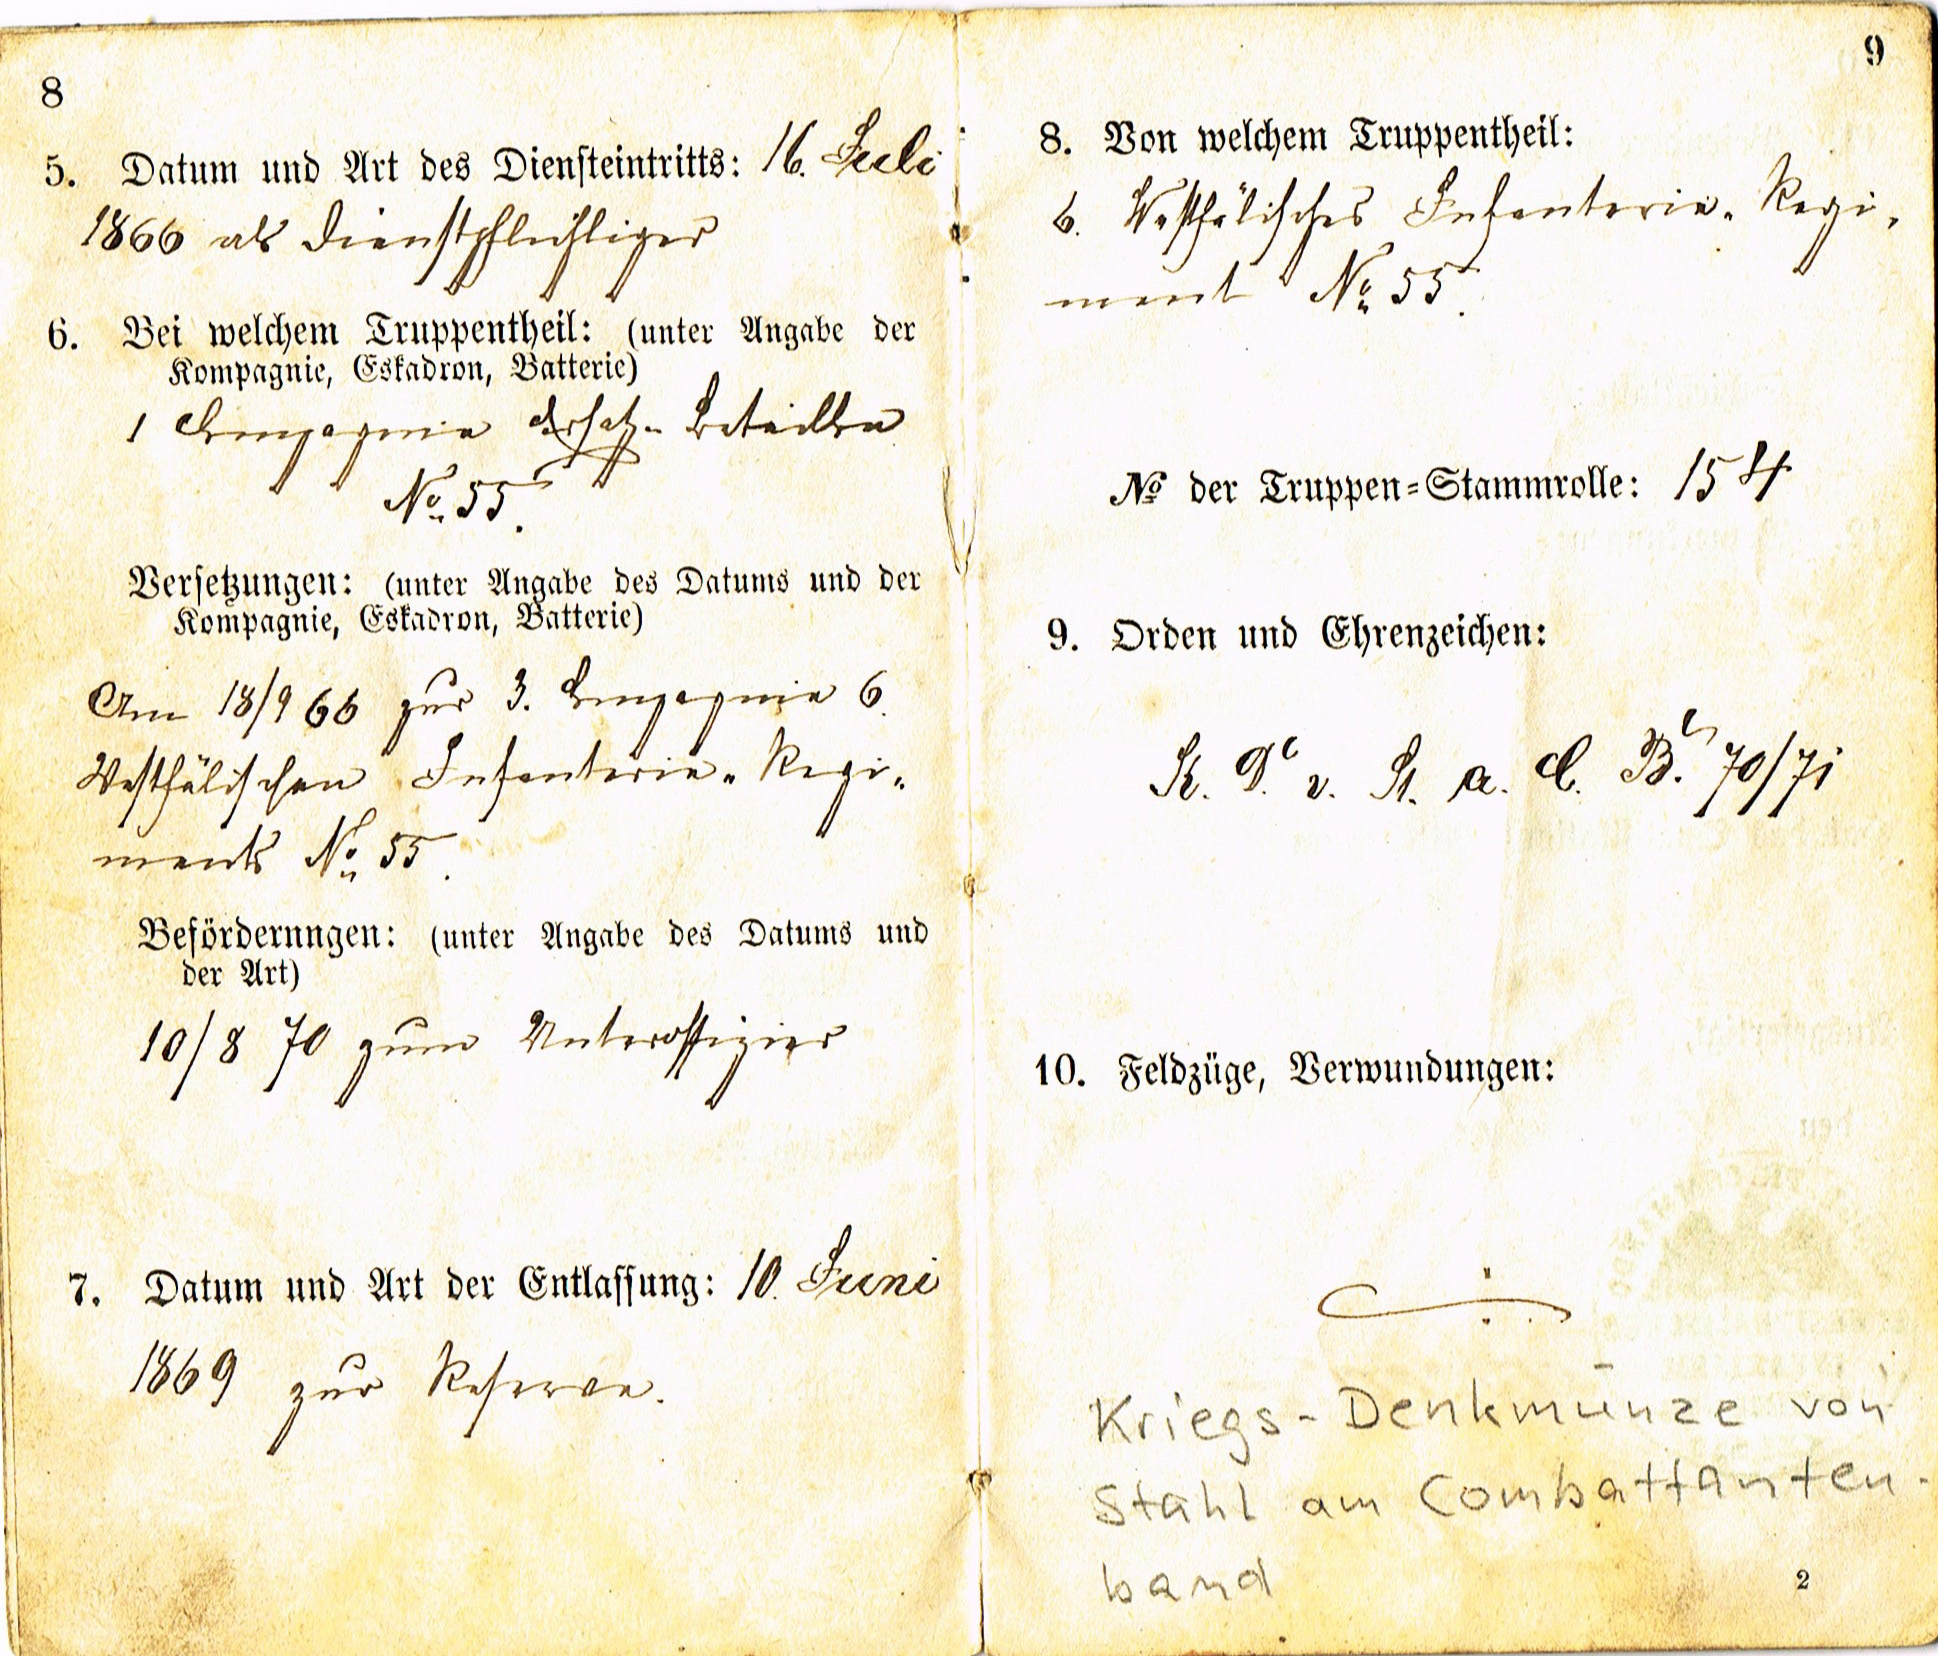 8
5. Datum und Art des Diensteintritts: 16. Juli
1866 als Dienstpflichtiger
6. Bei welchem Truppentheil: (unter Angabe der
Kompagnie, Eskadron, Batterie)
1 Compagnie Ersatz-Bataillon
No 55.
Versetzungen: (unter Angabe des Datums und der
Kompagnie, Eskadron, Batterie)
Am 18/9 66 zur 3. Compagnie 6.
Westfälischen Infanterie-Regi-
ments No 55.
Beförderungen: (unter Angabe des Datums und
der Art)
10/8 70 zum Unteroffizier
7. Datum und Art der Entlassung: 10. Juni
1869 zur Reserve.
9
8. Von welchem Truppentheil:
6. Westfälisches Infanterie-Regi-
ment No 55.
No der Truppen-Stammrolle: 154
9. Orden und Ehrenzeichen:
K. D. v. St. a. C. B. 70/71
10. Feldzüge, Verwundungen:
Kriegs-Denkmünze von
Stahl am Combattanten-
band
2